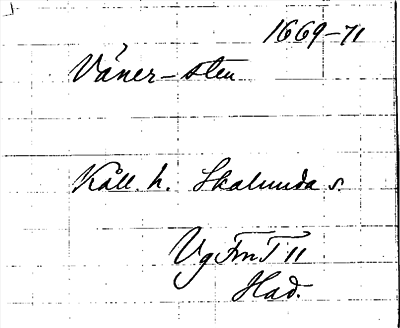 1669-71
Väner-sten
Kåll. h. Skalunda s.
Vg Fm T 11
Had.